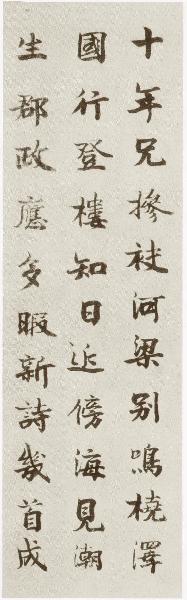 十年兄摻袪河梁别鳴橈澤
國行登樓知日近傍海見潮
生郡政應多暇新詩幾首成